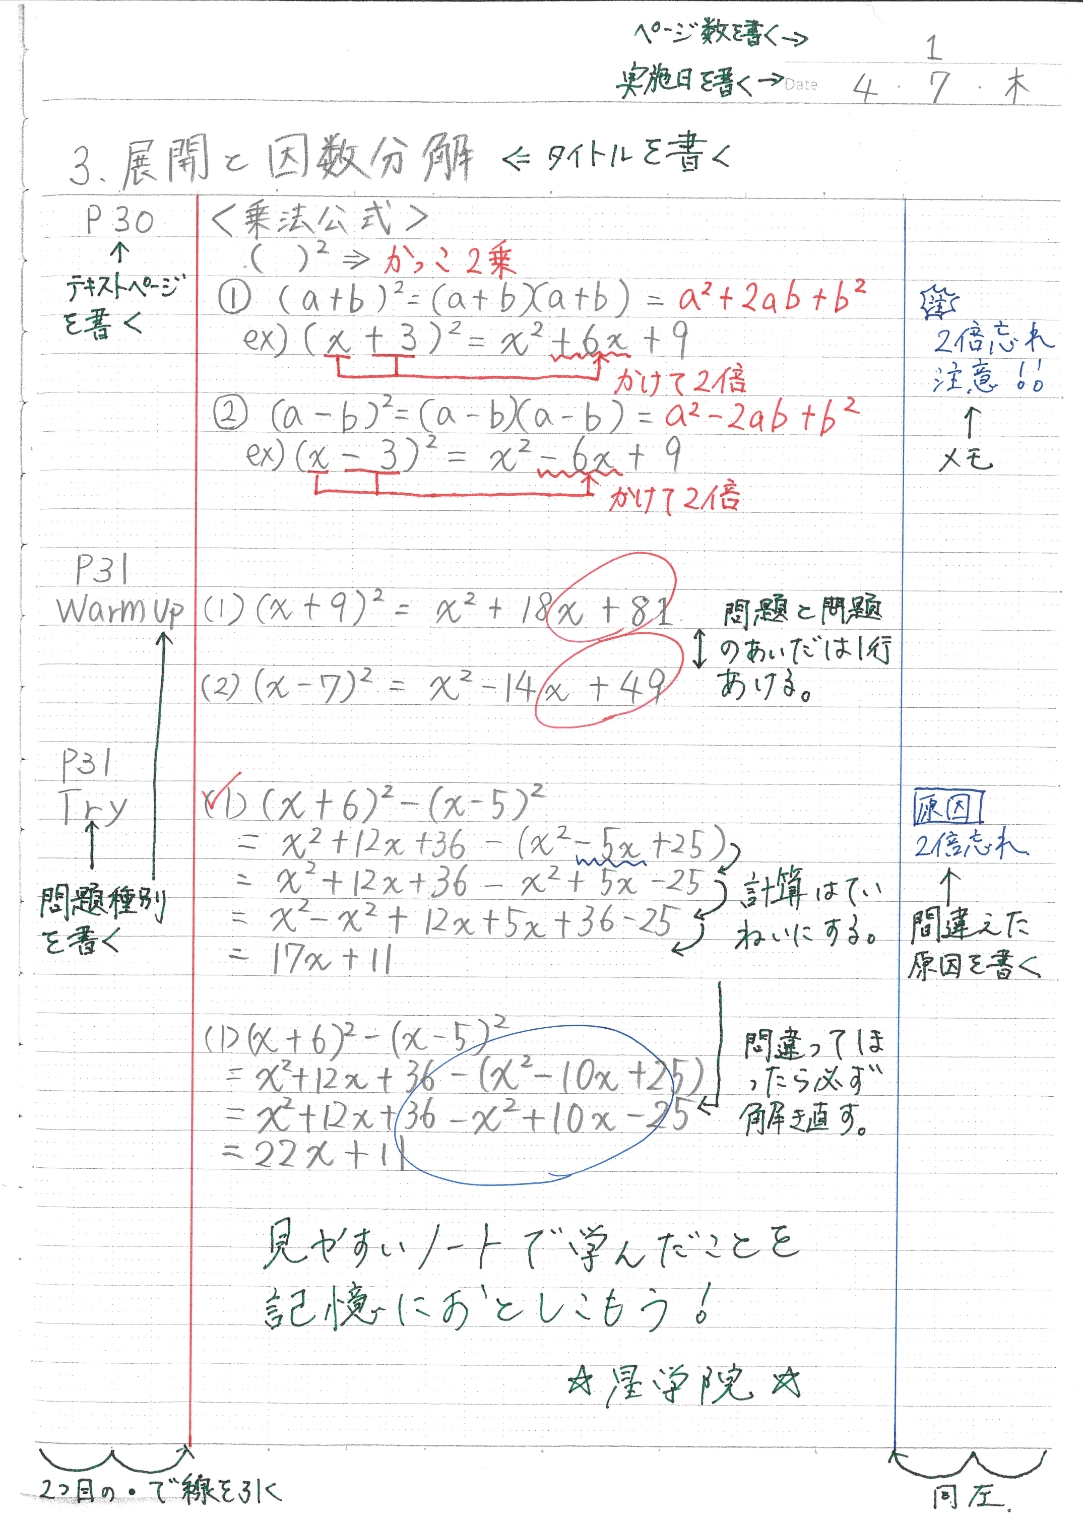 ページ数を書く→ 1
実施日を書く→ Date 4・7・木
3. 展開と因数分解 ⇐ タイトルを書く
P30
↑
テキストページ
を書く
<乗法公式>
( )² ⇒ かっこ2乗
① (a+b)²=(a+b)(a+b) = a²+2ab+b²
ex) (x+3)² = x²+6x+9
かけて2倍
② (a-b)²=(a-b)(a-b) = a²-2ab+b²
ex) (x-3)² = x²-6x+9
かけて2倍
注
2倍忘れ
注意!!
↑
メモ
P31
Warm Up (1) (x+9)² = x²+18x+81
(2) (x-7)² = x²-14x+49
問題と問題
のあいだは1行
あける。
P31
Try
問題種別
を書く
(1) (x+6)²-(x-5)²
= x²+12x+36-(x²-5x+25)
= x²+12x+36-x²+5x-25
= x²-x²+12x+5x+36-25
= 17x+11
計算はてい
ねいにする。
原因
2倍忘れ
↑
間違えた
原因を書く
(1) (x+6)²-(x-5)²
= x²+12x+36-(x²-10x+25)
= x²+12x+36-x²+10x-25
= 22x+11
間違ってしま
ったら必ず
解き直す。
見やすいノートで学んだことを
記憶におとしこもう!
☆星学院☆
2つ目の・で線を引く
同左.